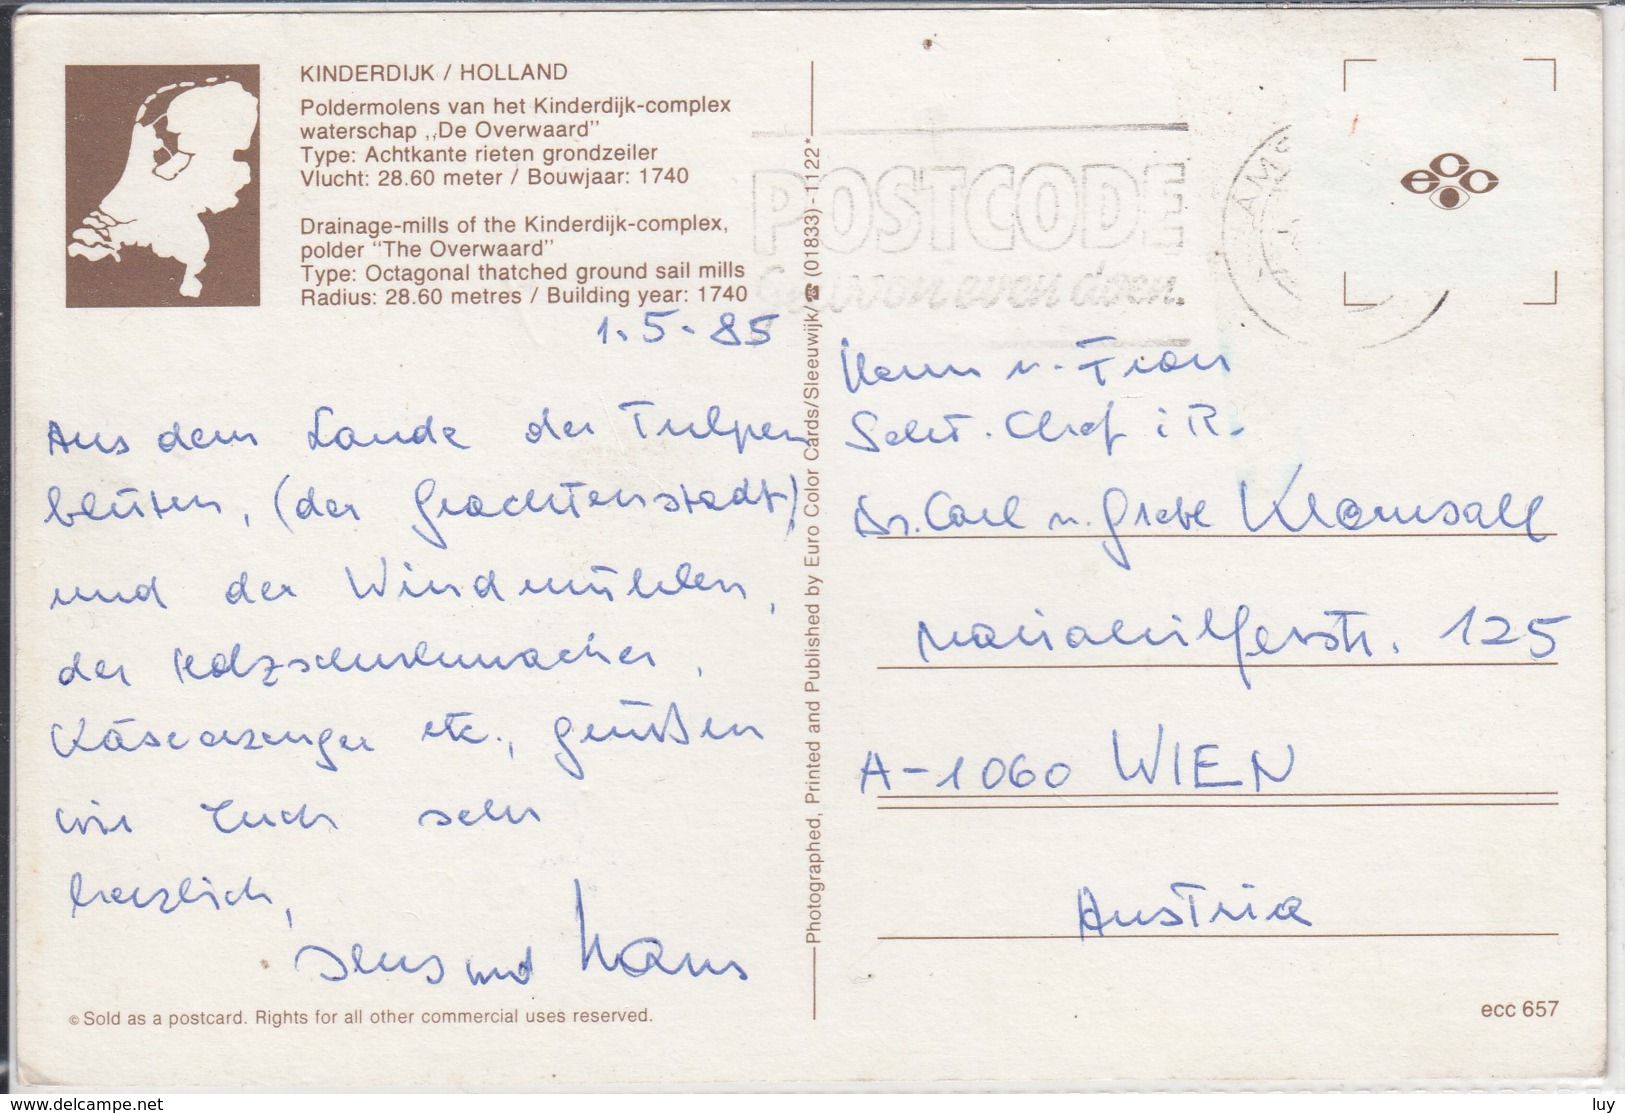 KINDERDIJK / HOLLAND
Poldermolens van het Kinderdijk-complex
waterschap „De Overwaard"
Type: Achtkante rieten grondzeiler
Vlucht: 28.60 meter / Bouwjaar: 1740
Drainage-mills of the Kinderdijk-complex,
polder "The Overwaard"
Type: Octagonal thatched ground sail mills
Radius: 28.60 metres / Building year: 1740
1.5.85
Aus dem Lande der Tulpen
blüten, (der Grachtenstadt)
und der Windmühlen,
der Holzschuhmacher,
Käseerzeuger etc., grüßen
wir Euch sehr
herzlich,
und Hans
© Sold as a postcard. Rights for all other commercial uses reserved.
Photographed, Printed and Published by Euro Color Cards/Sleeuwijk/☎ (01833) -1122*
POSTCODE
Gewoon even doen.
AMS
ecc
Herrn u. Frau
Sekt. Chef i R.
Dr. Carl u. Grete
Mariahilferstr. 125
A-1060 WIEN
Austria
ecc 657
www.delcampe.net
luy